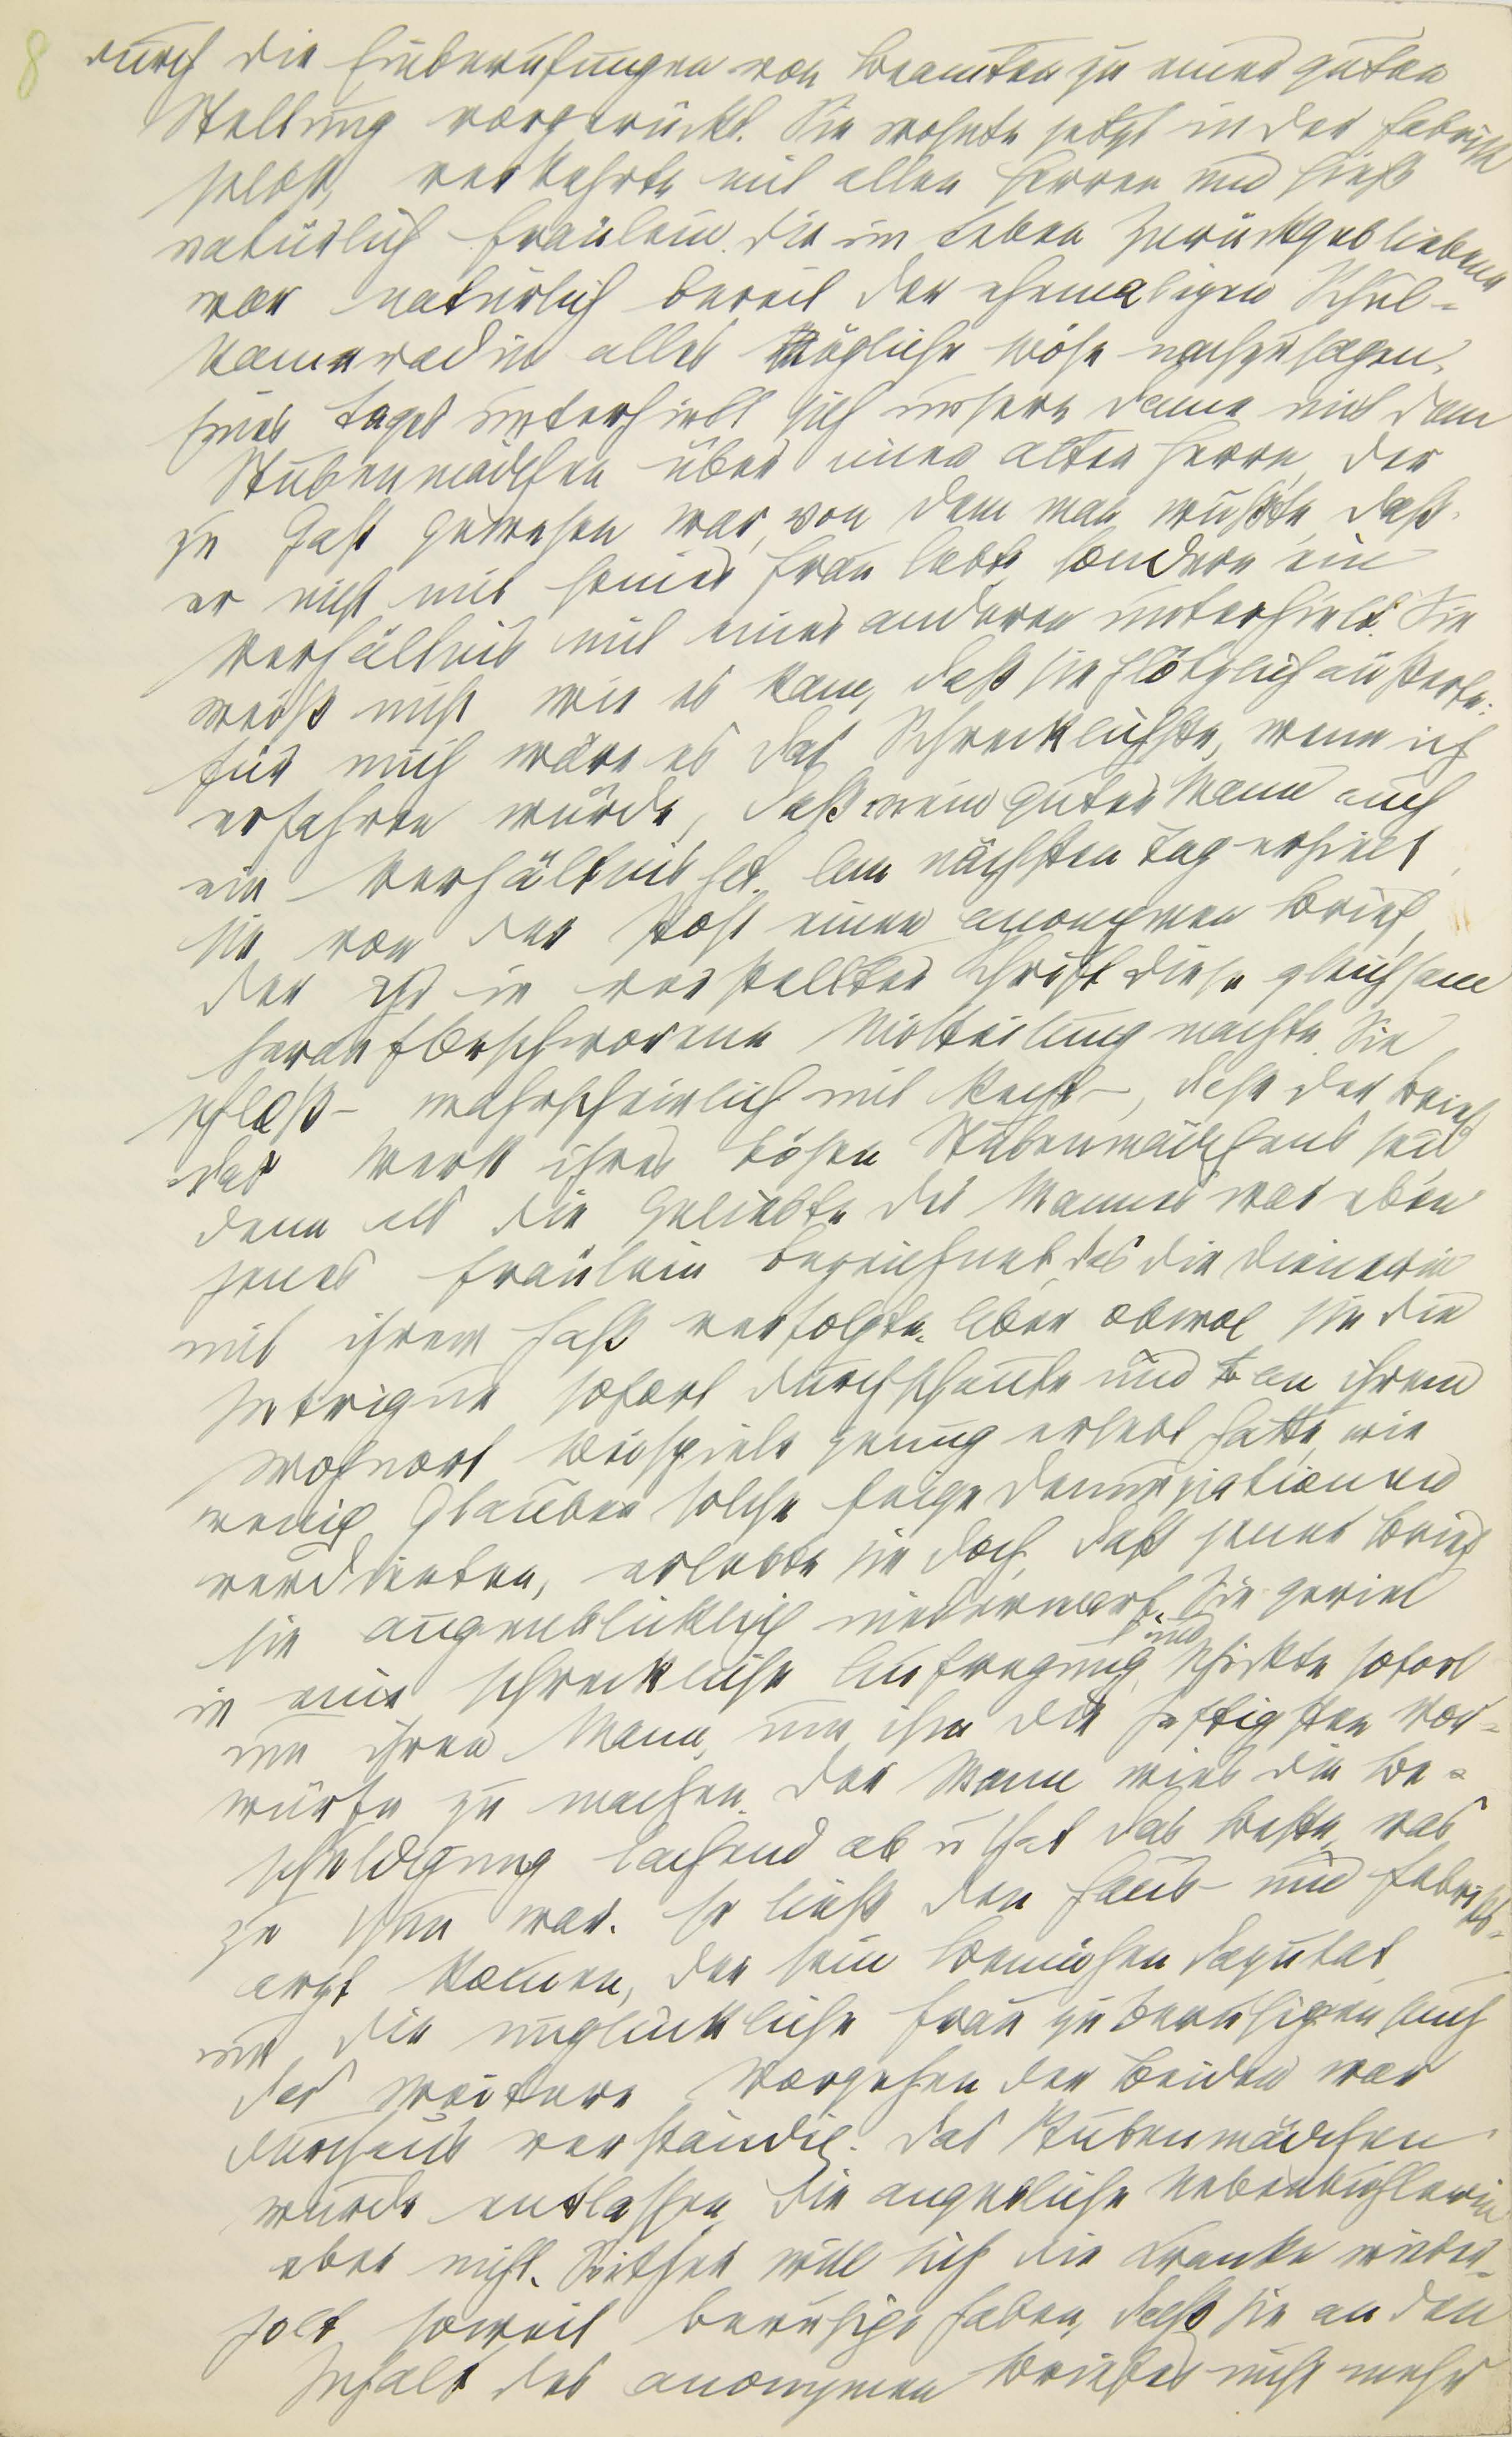 8
durch die Einberufungen von Beamten zu einer guten
Stellung vorgerückt. Sie wohnte jetzt in der Fabrik
selbst, verkehrte mit allen Herren und hieß
natürlich Fräulein. Die im Leben Zurückgebliebene
war natürlich bereit der ehemaligen Schul-
kameradin alles Mögliche böse nachzusagen.
Eines Tages unterhielt sich unsere Dame mit dem
Stubenmädchen über einen alten Herrn, der
zu Gast gewesen war, von dem man wußte, daß
er nicht mit seiner Frau lebte, sondern ein
Verhältnis mit einer anderen unterhielt. Sie
weiß nicht wie es kam, daß sie plötzlich äußerte:
Für mich wäre es das Schrecklichste, wenn ich
erfahren würde, daß mein guter Mann auch
ein Verhältnis hat. Am nächsten Tag erhielt
sie von der Post einen anonymen Brief,
der ihr in verstellter Schrift diese gleichsam
heraufbeschworene Mitteilung machte. Sie
schloß – wahrscheinlich mit Recht –, daß der Brief
das Werk ihres bösen Stubenmädchens sei
denn als die Geliebte des Mannes war eben
jenes Fräulein bezeichnet, das die Dienerin
mit ihrem Haß verfolgte. Aber obwol sie die
Intrigue sofort durchschaute und an ihrem
Wohnort Beispiele genug erlebt hatte, wie
wenig Glauben solche feige Denunziationen
verdienten, erlebte sie doch, daß jener Brief
sie augenblicklich niederwarf. Sie geriet
in eine schreckliche Aufregung und schickte sofort
um ihren Mann, um ihm die heftigsten Vor-
würfe zu machen. Der Mann wies die Be-
schuldigung lachend ab u that das Beste, was
zu thun war. Er ließ den Haus- und Fabriks-
arzt kommen, der sein Bemühen dazutat,
um die unglückliche Frau zu beruhigen. Auch
das weitere Vorgehen der Beiden war
durchaus verständig. Das Stubenmädchen
wurde entlassen, die angebliche Nebenbuhlerin
aber nicht. Seither will sich die Kranke wieder-
holt soweit beruhigt haben, daß sie an den
Inhalt des anonymen Briefes nicht mehr